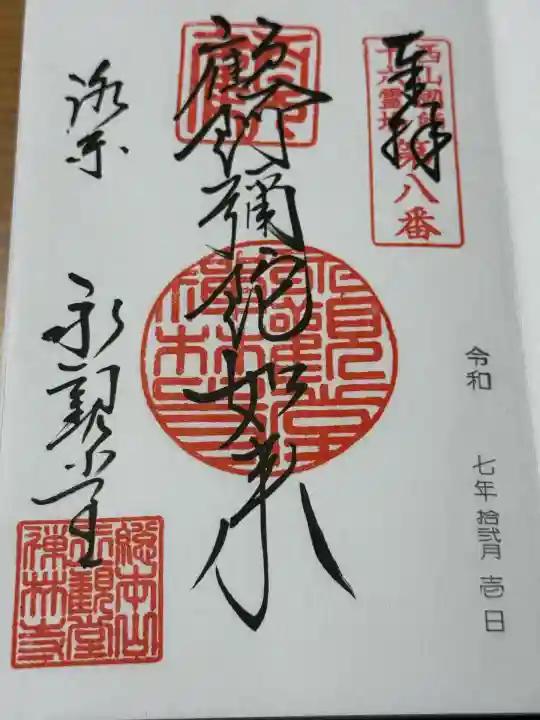 奉拝
西山國師
十六霊場
第八番
令和 七年 拾弐月 壱日
顧阿彌陀如来
洛東 永観堂
総本山
永觀堂
禅林寺